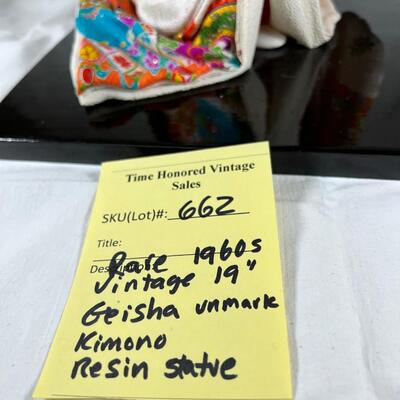 Time Honored Vintage
Sales
SKU(Lot)#: 662
Title: Rare 1960s
Description: Vintage 19"
Geisha unmark
Kimono
Resin statue